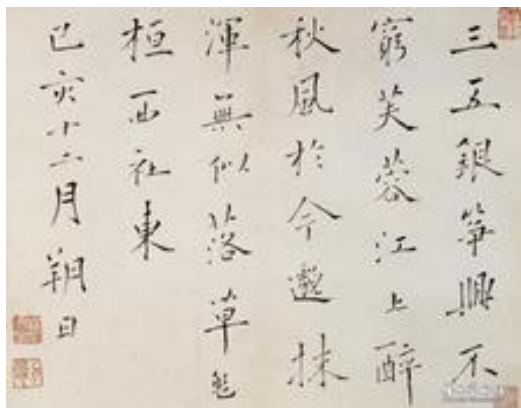 三五銀箏興不
窮芙蓉江上醉
秋風於今邀抹
渾無似落草
桓西社東
己亥十二月朔日